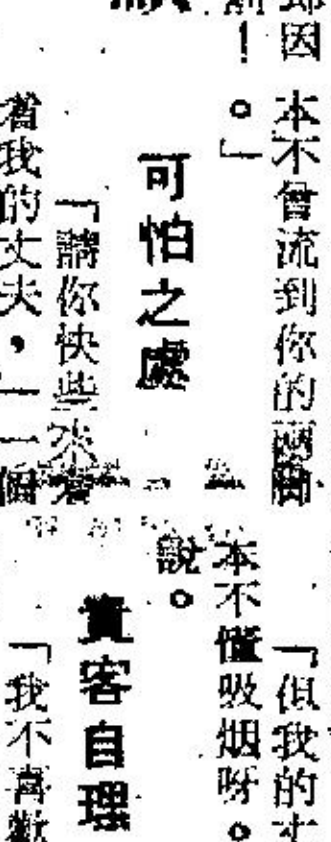 本不會流到你的兩
。」
可怕之處
「請你快些來看
着我的丈夫，」一個
「但我的丈
本不懂吸烟呀。
說。
責客自理
「我不喜歡